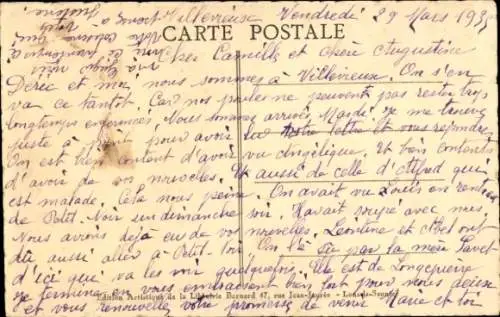 Villevieux Vendredi 29 Mars 193
CARTE POSTALE
Cher Camille et chère Augustine
Déric et moi, nous sommes à Villevieux. On s'en
va ce tantôt. Car nos poules ne peuvent pas rester trop
longtemps enfermées. Nous sommes arrivés Mardi, je me trouve
juste à point pour avoir lu votre lettre et vous répondre.
On est bien content d'avoir vu Angélique. Et bien contents
d'avoir de vos nouvelles. Et aussi de celle d'Alfred qui
est malade. Cela nous peine. On avait vu Louis en rentrant
de Petit. Noir un dimanche soir. Il avait soupé avec nous.
Nous avions déjà eu de vos nouvelles. Léontine et Abel ont
dû aussi aller à Petit-Noir. On l'a su par la mère
d'ici qui va les voir quelquefois. Elle est de Longepierre
Je termine en vous embrassant bien fort pour nous deux
Edition Artistique de la Librairie Bernard 47, rue Jean-Jaurès
et vous renouvelle votre promesse de venir Marie et toi